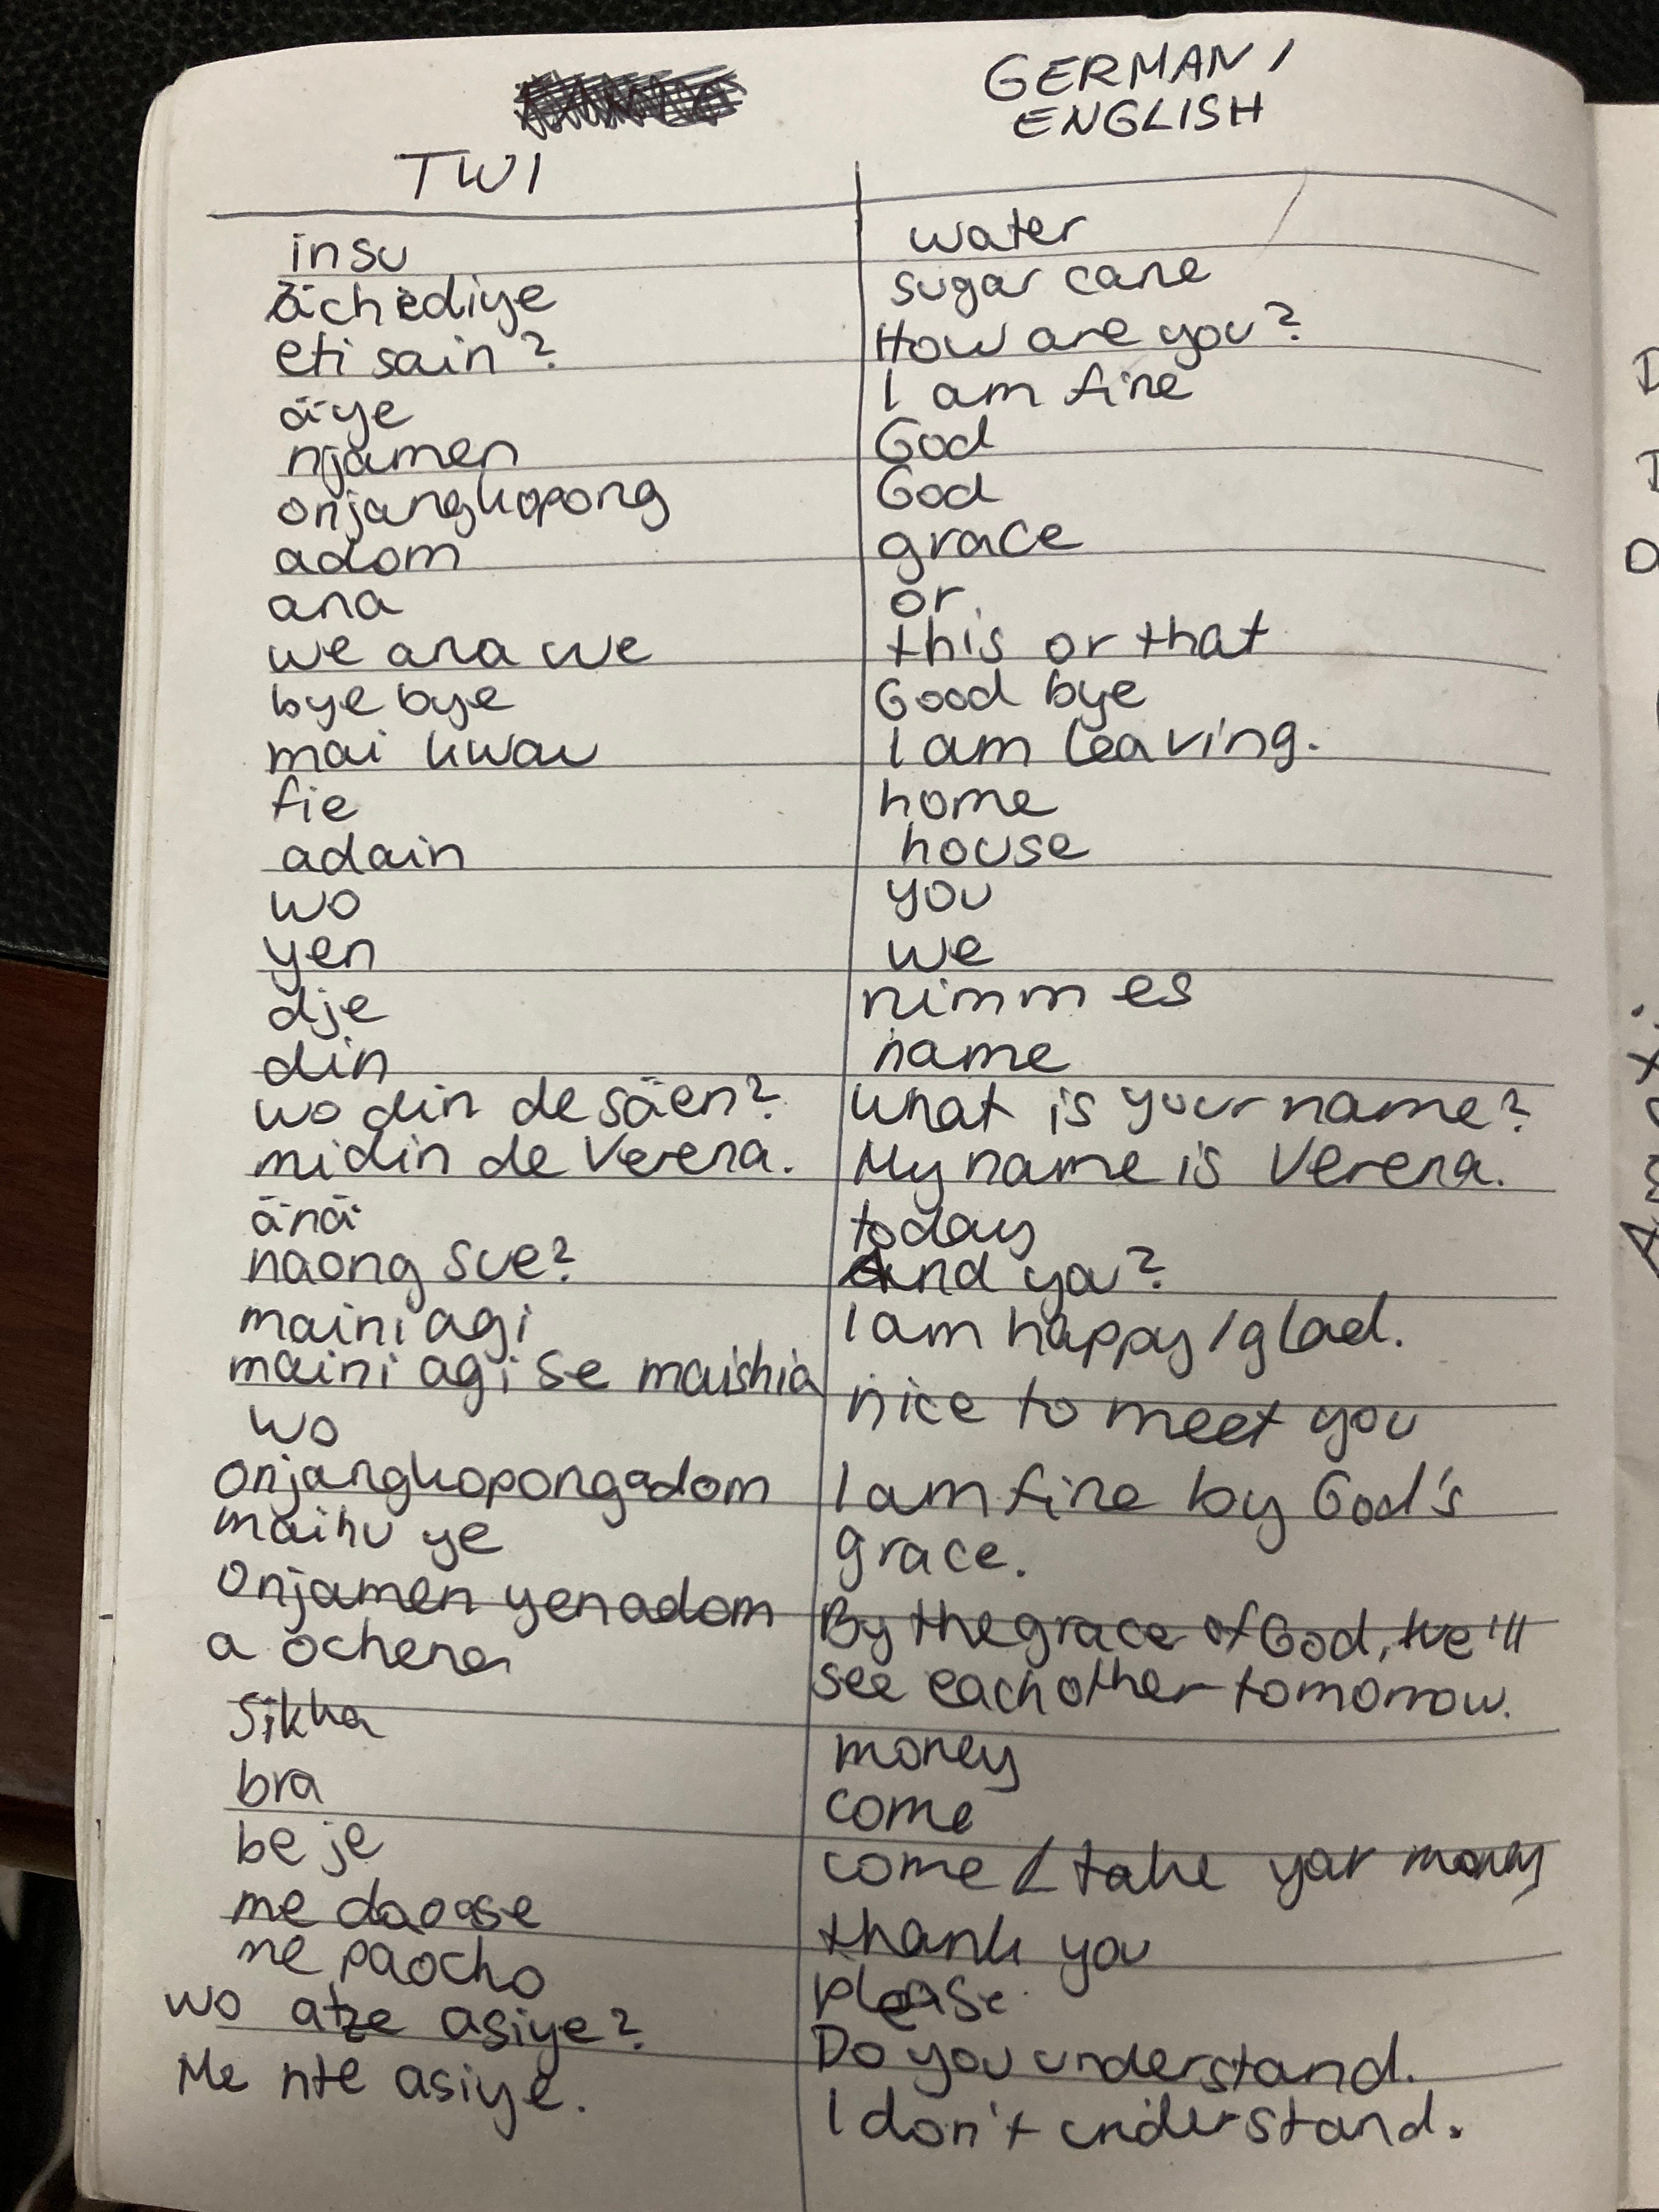 GERMAN /
ENGLISH
TWI
insu water
ächediye sugar cane
eti sain? How are you?
äye I am fine
njamen God
onjangkopong God
adom grace
ana or
we ana we this or that
bye bye Good bye
mai kwau I am leaving.
fie home
adain house
wo you
yen we
dje nimm es
din name
wo din de säen? What is your name?
midin de Verena. My name is Verena.
änä today
naong sue? And you?
maini agi I am happy / glad.
maini agi se maishia nice to meet you
wo
onjangkopongadom I am fine by God's
maihu ye grace.
Onjamen yenadom By the grace of God, we'll
a ochena see each other tomorrow.
Sikka money
bra come
be je come / take your money
me daoase thank you
me paocho please
wo atze asiye? Do you understand.
Me nte asiye. I don't understand.